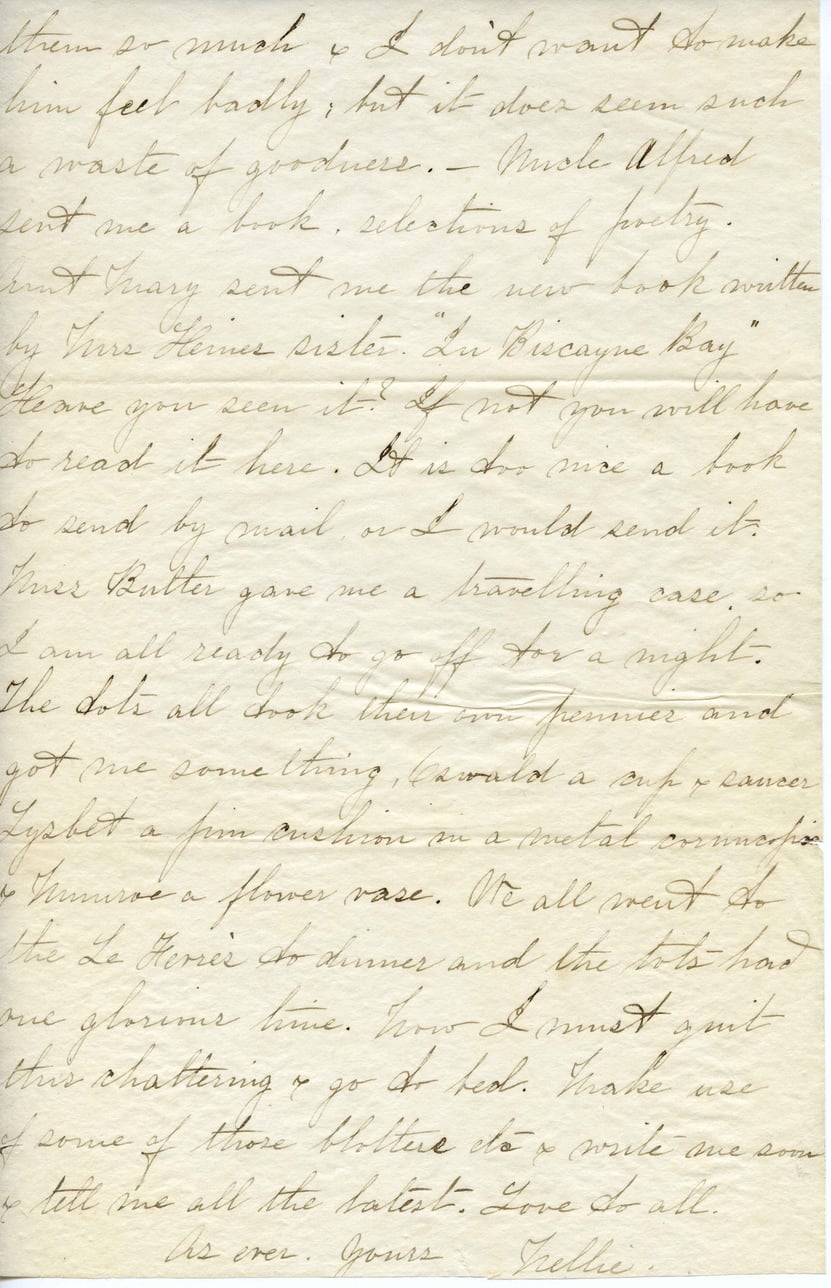 them so much & I don't want to make
him feel badly; but it does seem such
a waste of goodness. — Uncle Alfred
sent me a book, selections of poetry.
Aunt Mary sent me the new book written
by Mrs Heines sister. "In Biscayne Bay"
Heave you seen it? If not you will have
to read it here. It is too nice a book
to send by mail, or I would send it.
Miss Butler gave me a travelling case, so
I am all ready to go off for a night.
The tots all took their own pennies and
got me something, Oswald a cup & saucer
Lyzbet a pin cushion in a metal cornucopia
& Munroe a flower vase. We all went to
the Le Ferre's to dinner and the tots had
one glorious time. Now I must quit
this chattering & go to bed. Make use
of some of those blotters etc & write me soon
& tell me all the latest. Love to all.
As ever. Yours Nellie.